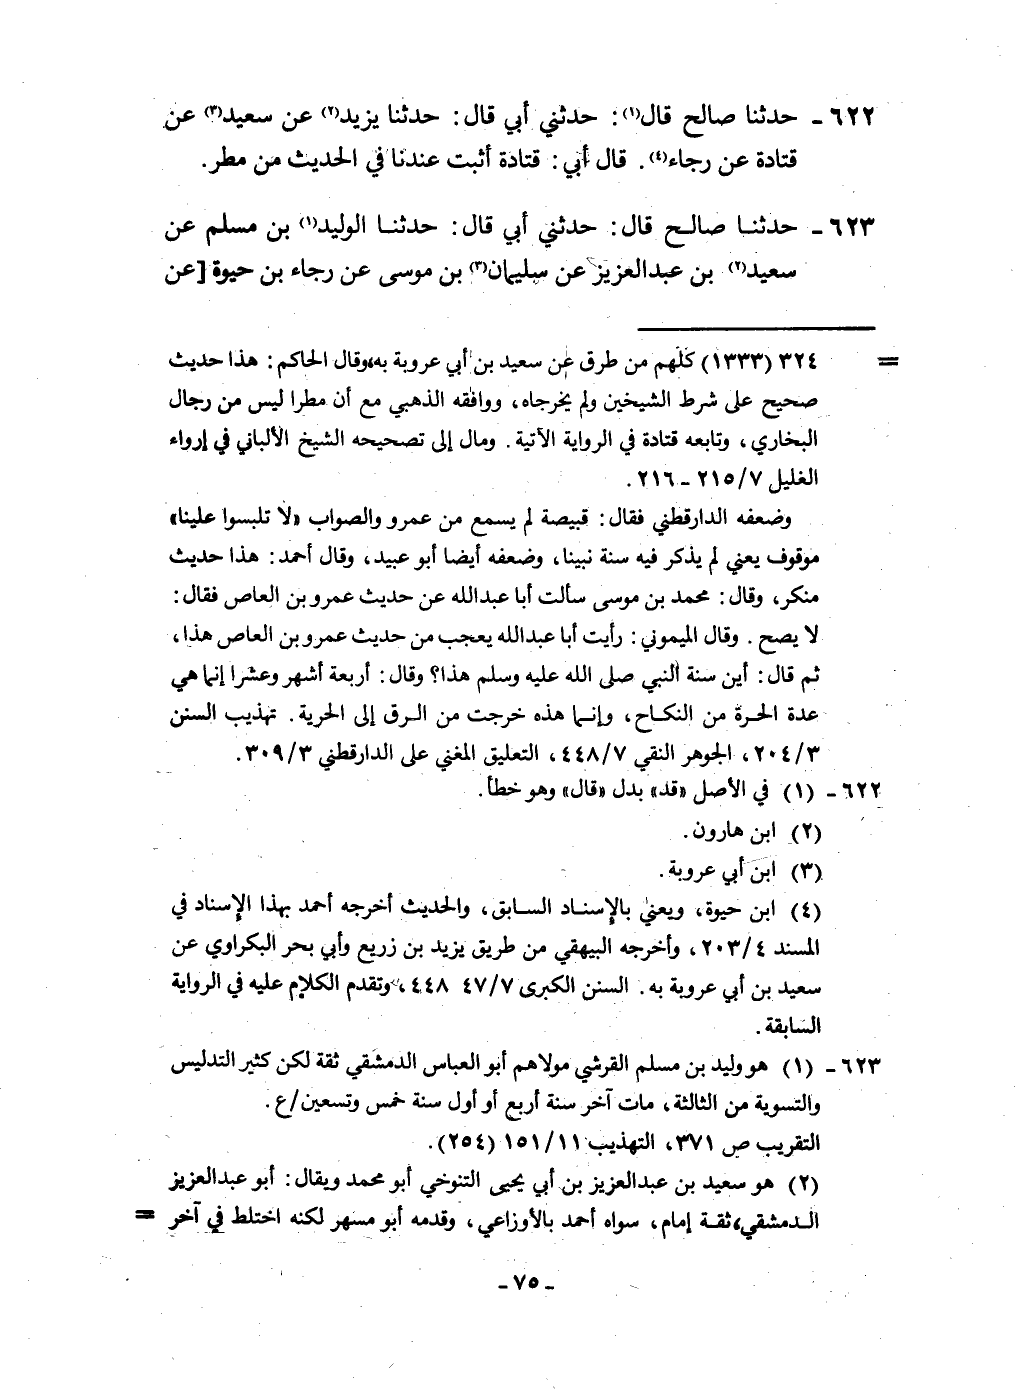 ٦٢٢ - حدثنا صالح قال(١): حدثني أبي قال: حدثنا يزيد(٢) عن سعيد(٣) عن
قتادة عن رجاء(٤). قال أبي: قتادة أثبت عندنا في الحديث من مطر.
٦٢٣ - حدثنا صالح قال: حدثني أبي قال: حدثنا الوليد(١) بن مسلم عن
سعيد(٢) بن عبدالعزيز عن سليمان(٣) بن موسى عن رجاء بن حيوة [عن
= ٣٢٤ (١٣٣٣) كلهم من طرق عن سعيد بن أبي عروبة به، وقال الحاكم: هذا حديث
صحيح على شرط الشيخين ولم يخرجاه، ووافقه الذهبي مع أن مطرا ليس من رجال
البخاري، وتابعه قتادة في الرواية الآتية. ومال إلى تصحيحه الشيخ الألباني في إرواء
الغليل ٢١٥/٧ - ٢١٦.
وضعفه الدارقطني فقال: قبيصة لم يسمع من عمرو والصواب «لا تلبسوا علينا»
موقوف يعني لم يذكر فيه سنة نبينا، وضعفه أيضا أبو عبيد، وقال أحمد: هذا حديث
منكر، وقال: محمد بن موسى سألت أبا عبدالله عن حديث عمرو بن العاص فقال:
لا يصح. وقال الميموني: رأيت أبا عبدالله يعجب من حديث عمرو بن العاص هذا،
ثم قال: أين سنة النبي صلى الله عليه وسلم هذا؟ وقال: أربعة أشهر وعشرا إنما هي
عدة الحرة من النكاح، وإنما هذه خرجت من الرق إلى الحرية. تهذيب السنن
٢٠٤/٣، الجوهر النقي ٤٤٨/٧، التعليق المغني على الدارقطني ٣٠٩/٣.
٦٢٢ - (١) في الأصل «قد» بدل «قال» وهو خطأ.
(٢) ابن هارون.
(٣) ابن أبي عروبة.
(٤) ابن حيوة، ويعني بالإسناد السابق، والحديث أخرجه أحمد بهذا الإسناد في
المسند ٢٠٣/٤، وأخرجه البيهقي من طريق يزيد بن زريع وأبي بحر البكراوي عن
سعيد بن أبي عروبة به. السنن الكبرى ٤٧/٧ ٤٤٨، وتقدم الكلام عليه في الرواية
السابقة.
٦٢٣ - (١) هو وليد بن مسلم القرشي مولاهم أبو العباس الدمشقي ثقة لكن كثير التدليس
والتسوية من الثالثة، مات آخر سنة أربع أو أول سنة خمس وتسعين/ع.
التقريب ص ٣٧١، التهذيب ١٥١/١١ (٢٥٤).
(٢) هو سعيد بن عبدالعزيز بن أبي يحيى التنوخي أبو محمد ويقال: أبو عبدالعزيز
الدمشقي، ثقة إمام، سواه أحمد بالأوزاعي، وقدمه أبو مسهر لكنه اختلط في آخر =
- ٧٥ -